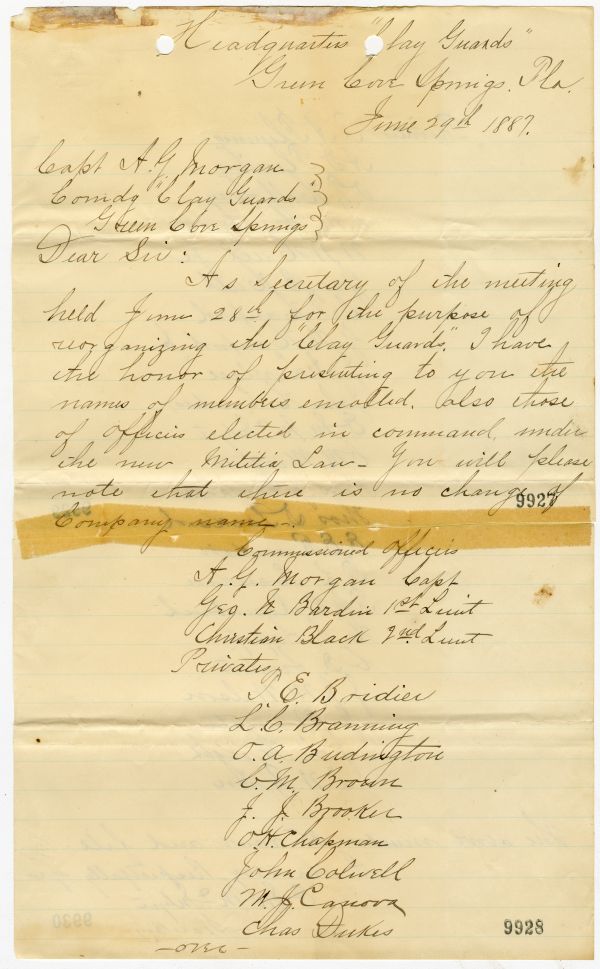 Headquarters "Clay Guards"
Green Cove Springs. Fla.
June 29th 1887.
Capt A. G. Morgan
Comdg "Clay Guards"
Green Cove Springs
Dear Sir:
As Secretary of the meeting
held June 28th for the purpose of
reorganizing the "Clay Guards". I have
the honor of presenting to you the
names of members enrolled. also those
of officers elected in command, under
the new Militia Law - You will please
note that there is no change of
9927
Company name -
Commissioned Officers
A. G. Morgan Capt
Geo. N Bardin 1st Lieut
Christian Black 2nd Lieut
Privates,
P. E. Bridier
L. C. Branning
O. A. Budington
C. M. Brown
J. J. Brooker
O. H. Chapman
John Colwell
W. J. Canova
Chas Dukes
9928
- over -
9930